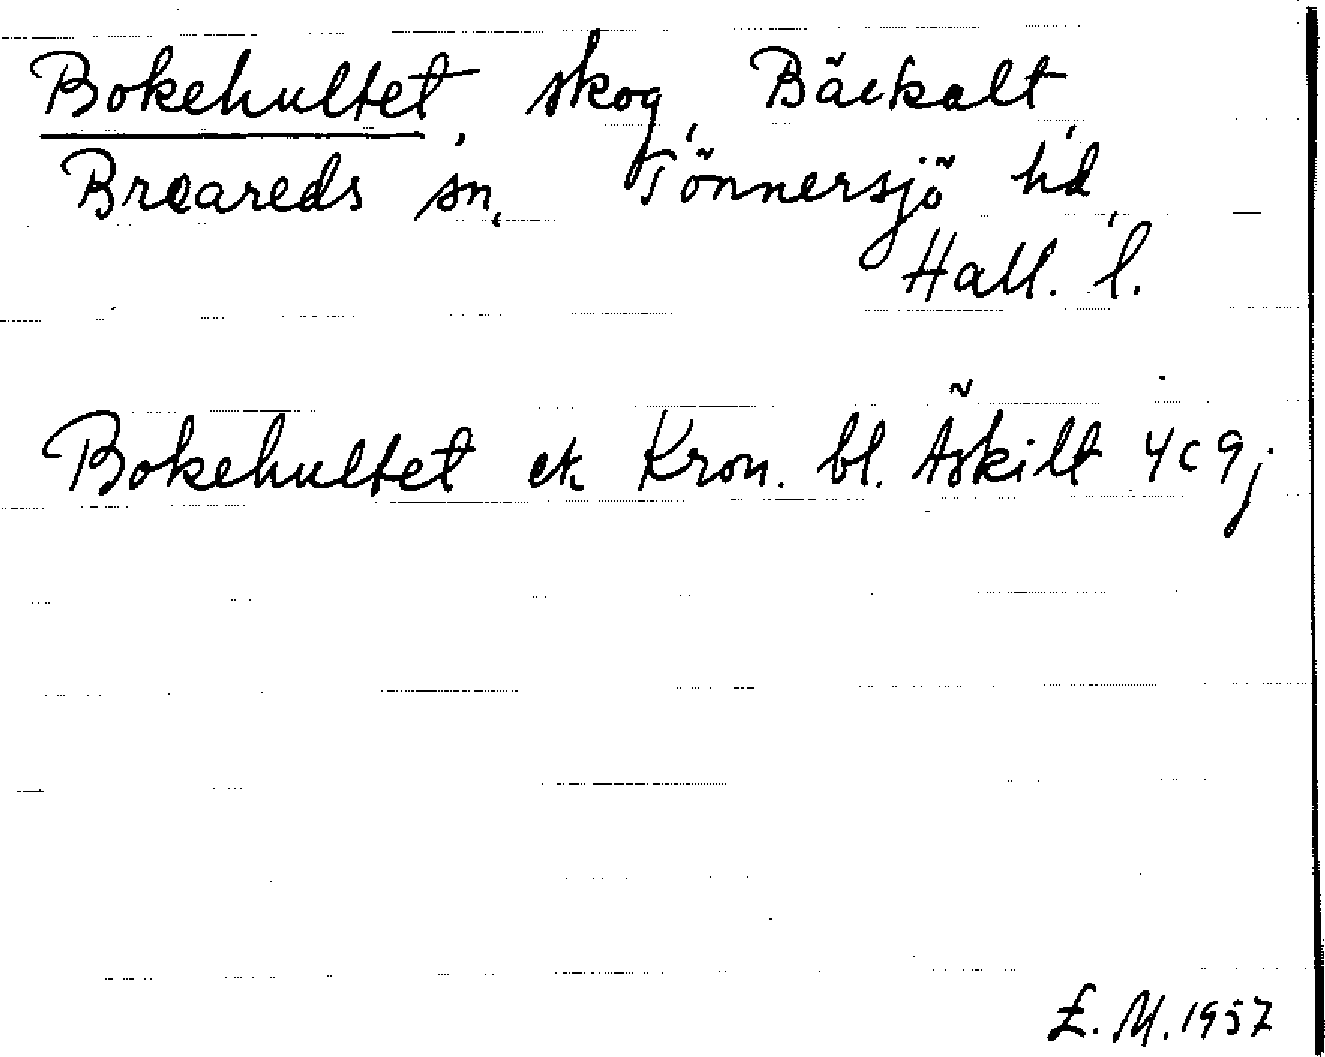 Bokehultet, skog, Bäckalt,
Breareds sn, Tönnersjö hd,
Hall. l.
Bokehultet ek Kron. bl. Äskilt 4c9j
E. M. 1957